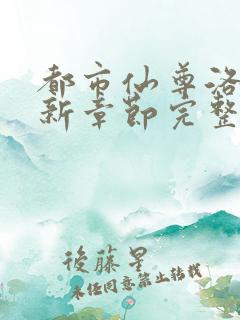 都市仙尊洛
新章節完整
後藤星
未经同意禁止转载